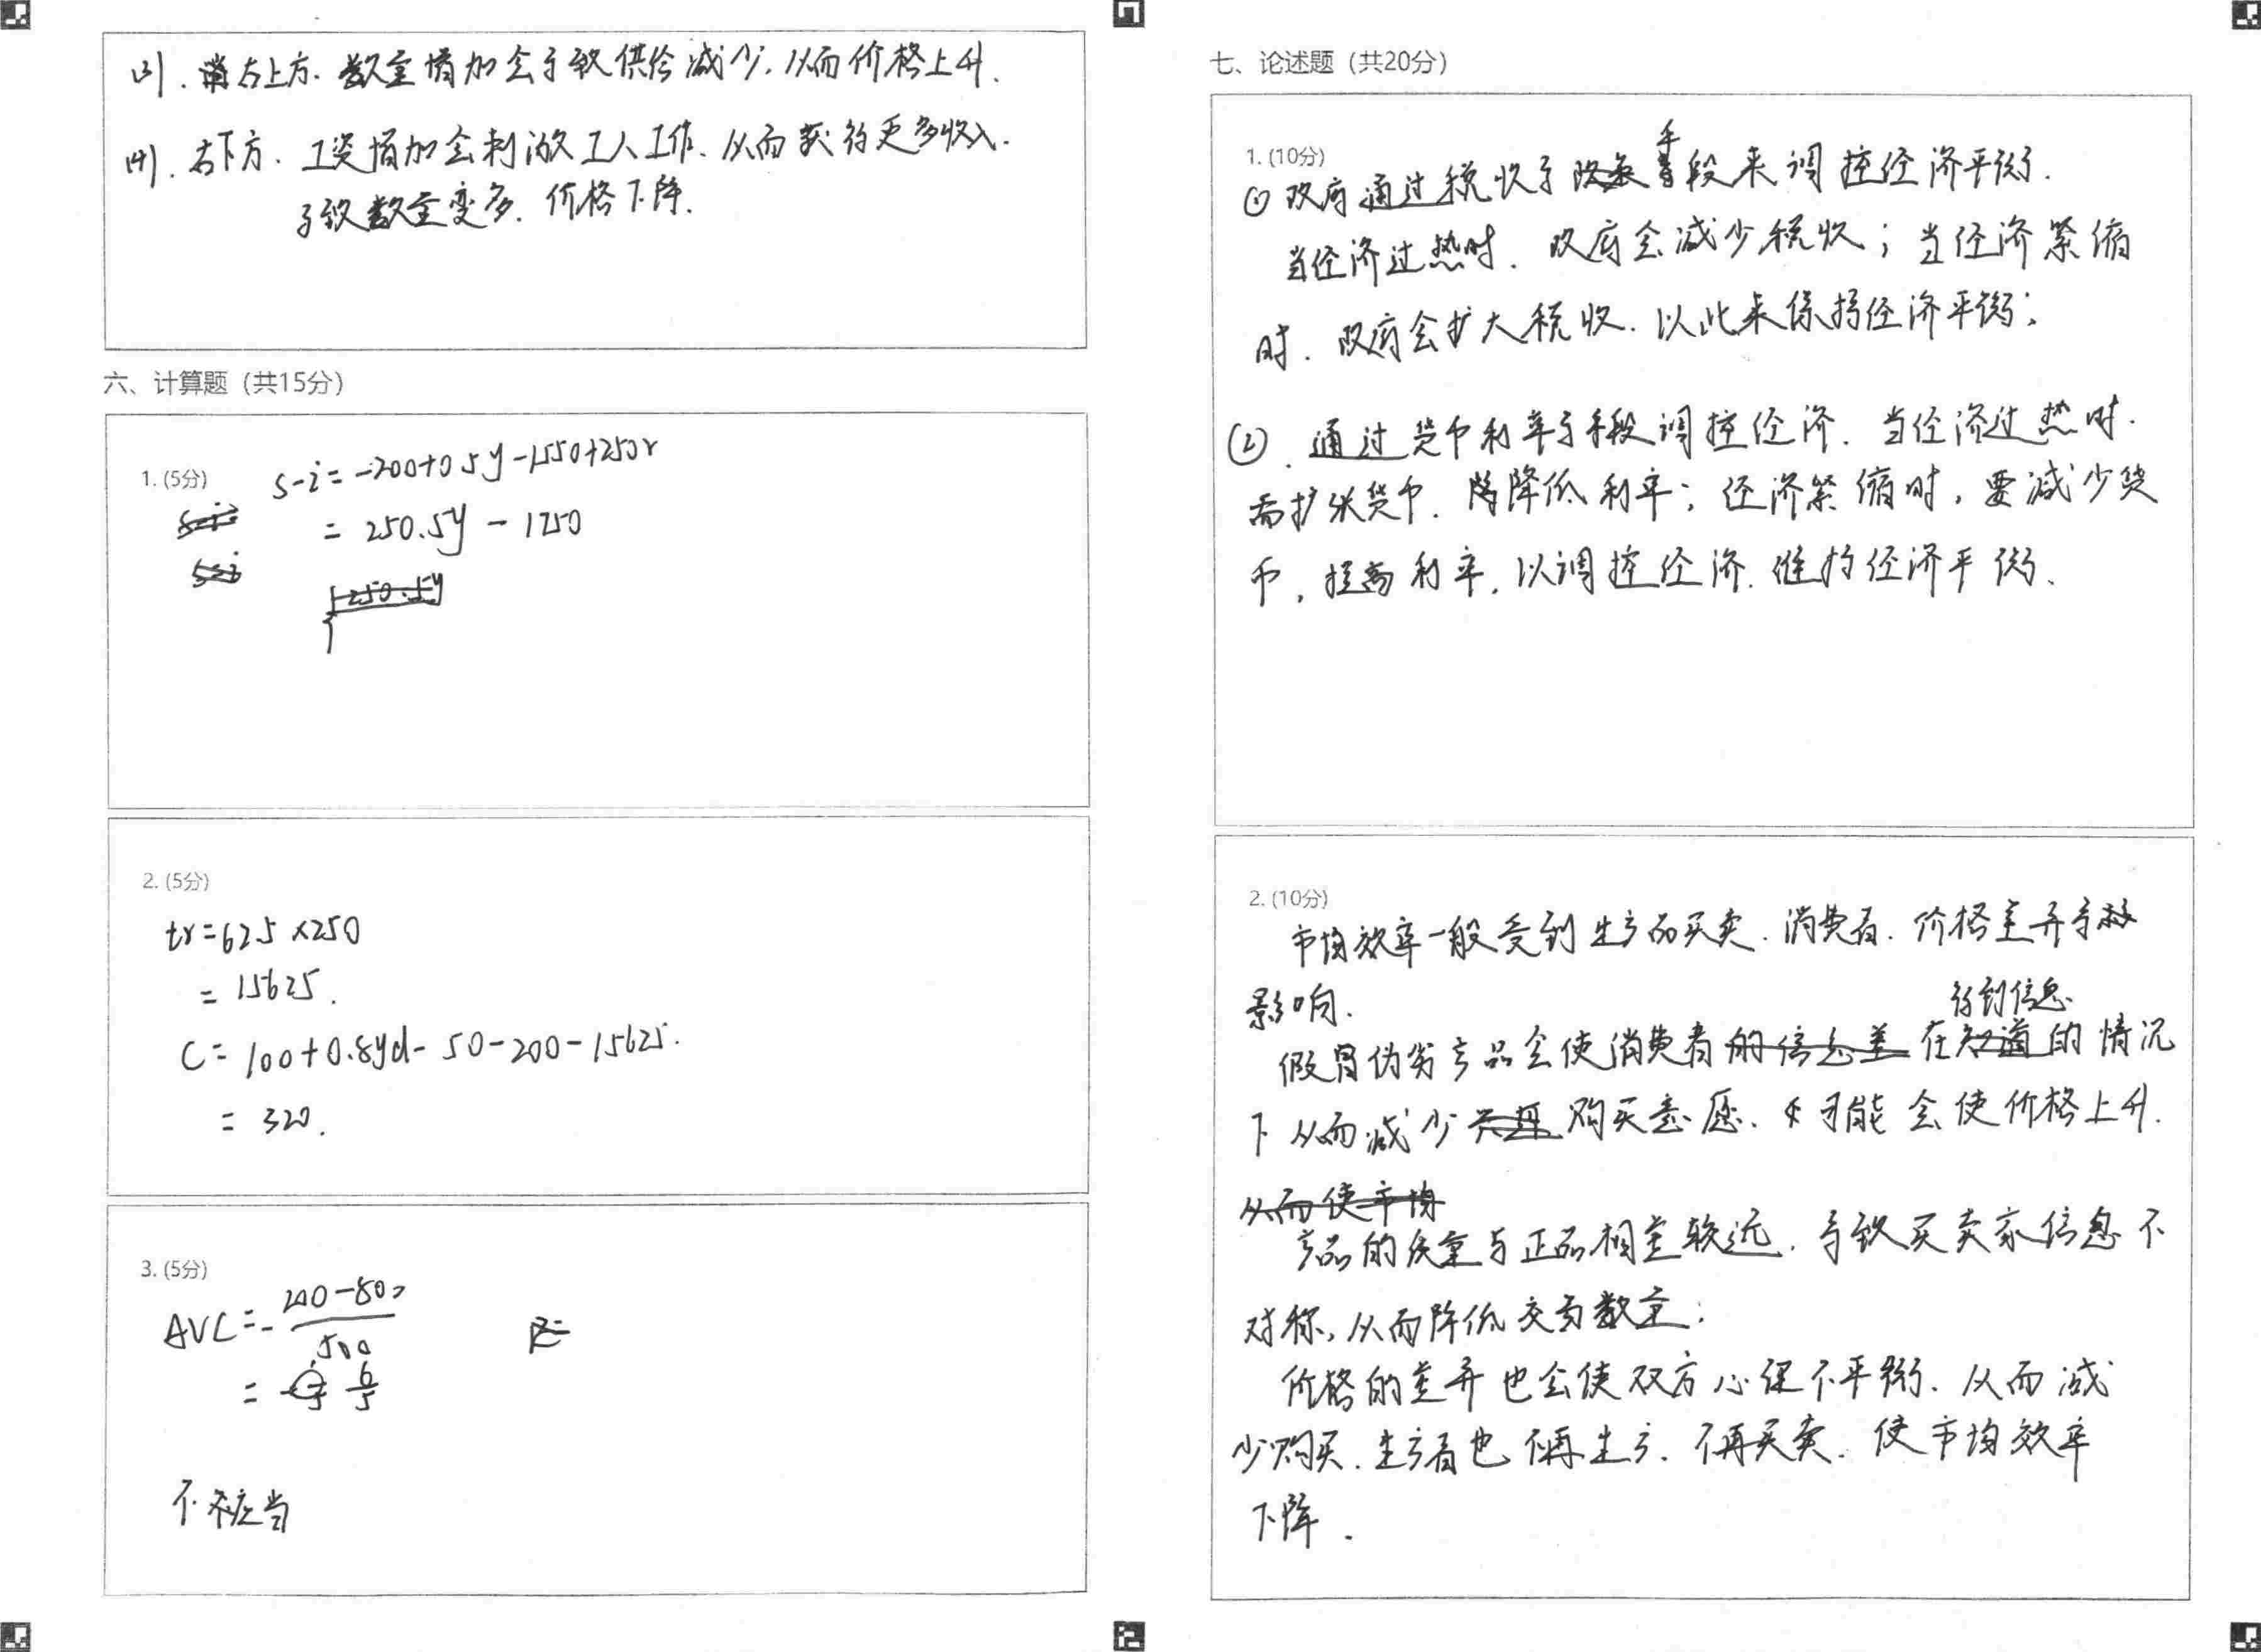 (3). 右上方. 数量增加会导致供给减少. 从而价格上升.
(4). 右下方. 工资增加会刺激工人工作. 从而获得更多收入.
导致数量变多. 价格下降.
六、计算题（共15分）
1. (5分)
s-i=-200+0.5y-1550+250r
= 250.5y-1750
2. (5分)
tr=625×250
= 15625.
C= 100+0.8yd-50-200-15625.
= 320.
3. (5分)
AVC=-200-800/500
= 6/5
不应当
七、论述题（共20分）
1. (10分)
① 政府通过税收等手段来调控经济平衡.
当经济过热时. 政府会减少税收；当经济紧缩
时. 政府会扩大税收. 以此来保持经济平衡；
②. 通过货币利率等手段调控经济. 当经济过热时.
需扩张货币. 降低利率；经济紧缩时，要减少货
币，提高利率. 以调控经济. 维持经济平衡.
2. (10分)
市场效率一般受到生产品买卖. 消费者. 价格差异等
影响.
假冒伪劣产品会使消费者在得到信息的情况
下从而减少购买意愿. 可能会使价格上升.
产品的质量与正品相差较远. 导致买卖家信息不
对称, 从而降低交易数量；
价格的差异也会使双方心理不平衡. 从而减
少购买. 生产者也不再生产. 不再买卖. 使市场效率
下降.